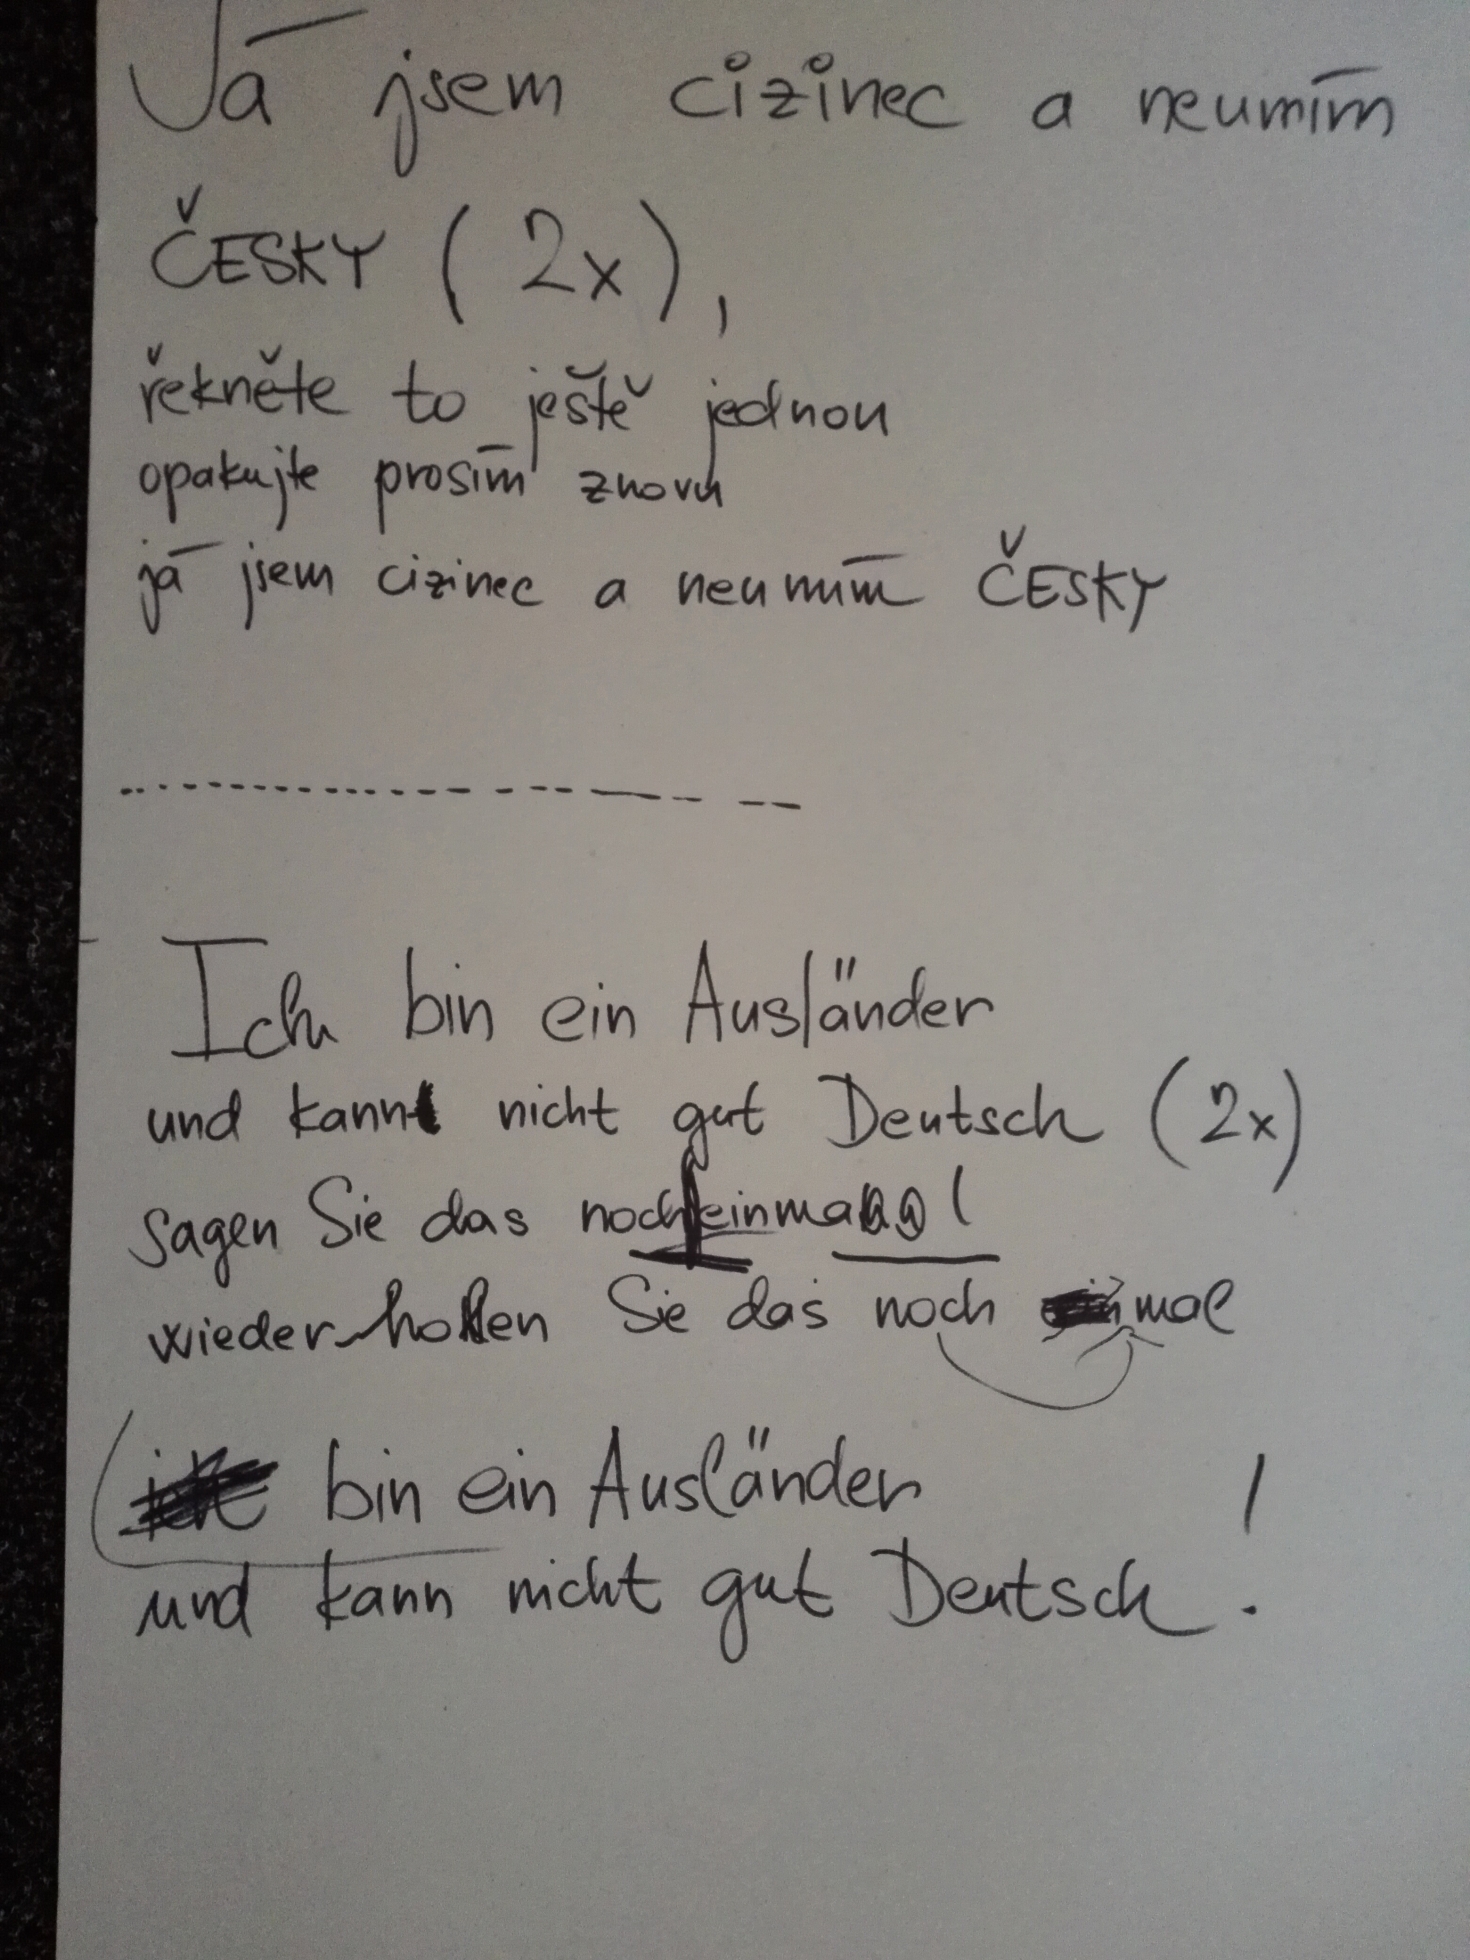 Já jsem cizinec a neumím
ČESKY (2x),
řekněte to ještě jednou
opakujte prosím znovu
já jsem cizinec a neumím ČESKY
Ich bin ein Ausländer
und kann nicht gut Deutsch (2x)
sagen Sie das noch
wiederholen Sie das noch mal
bin ein Ausländer
und kann nicht gut Deutsch!